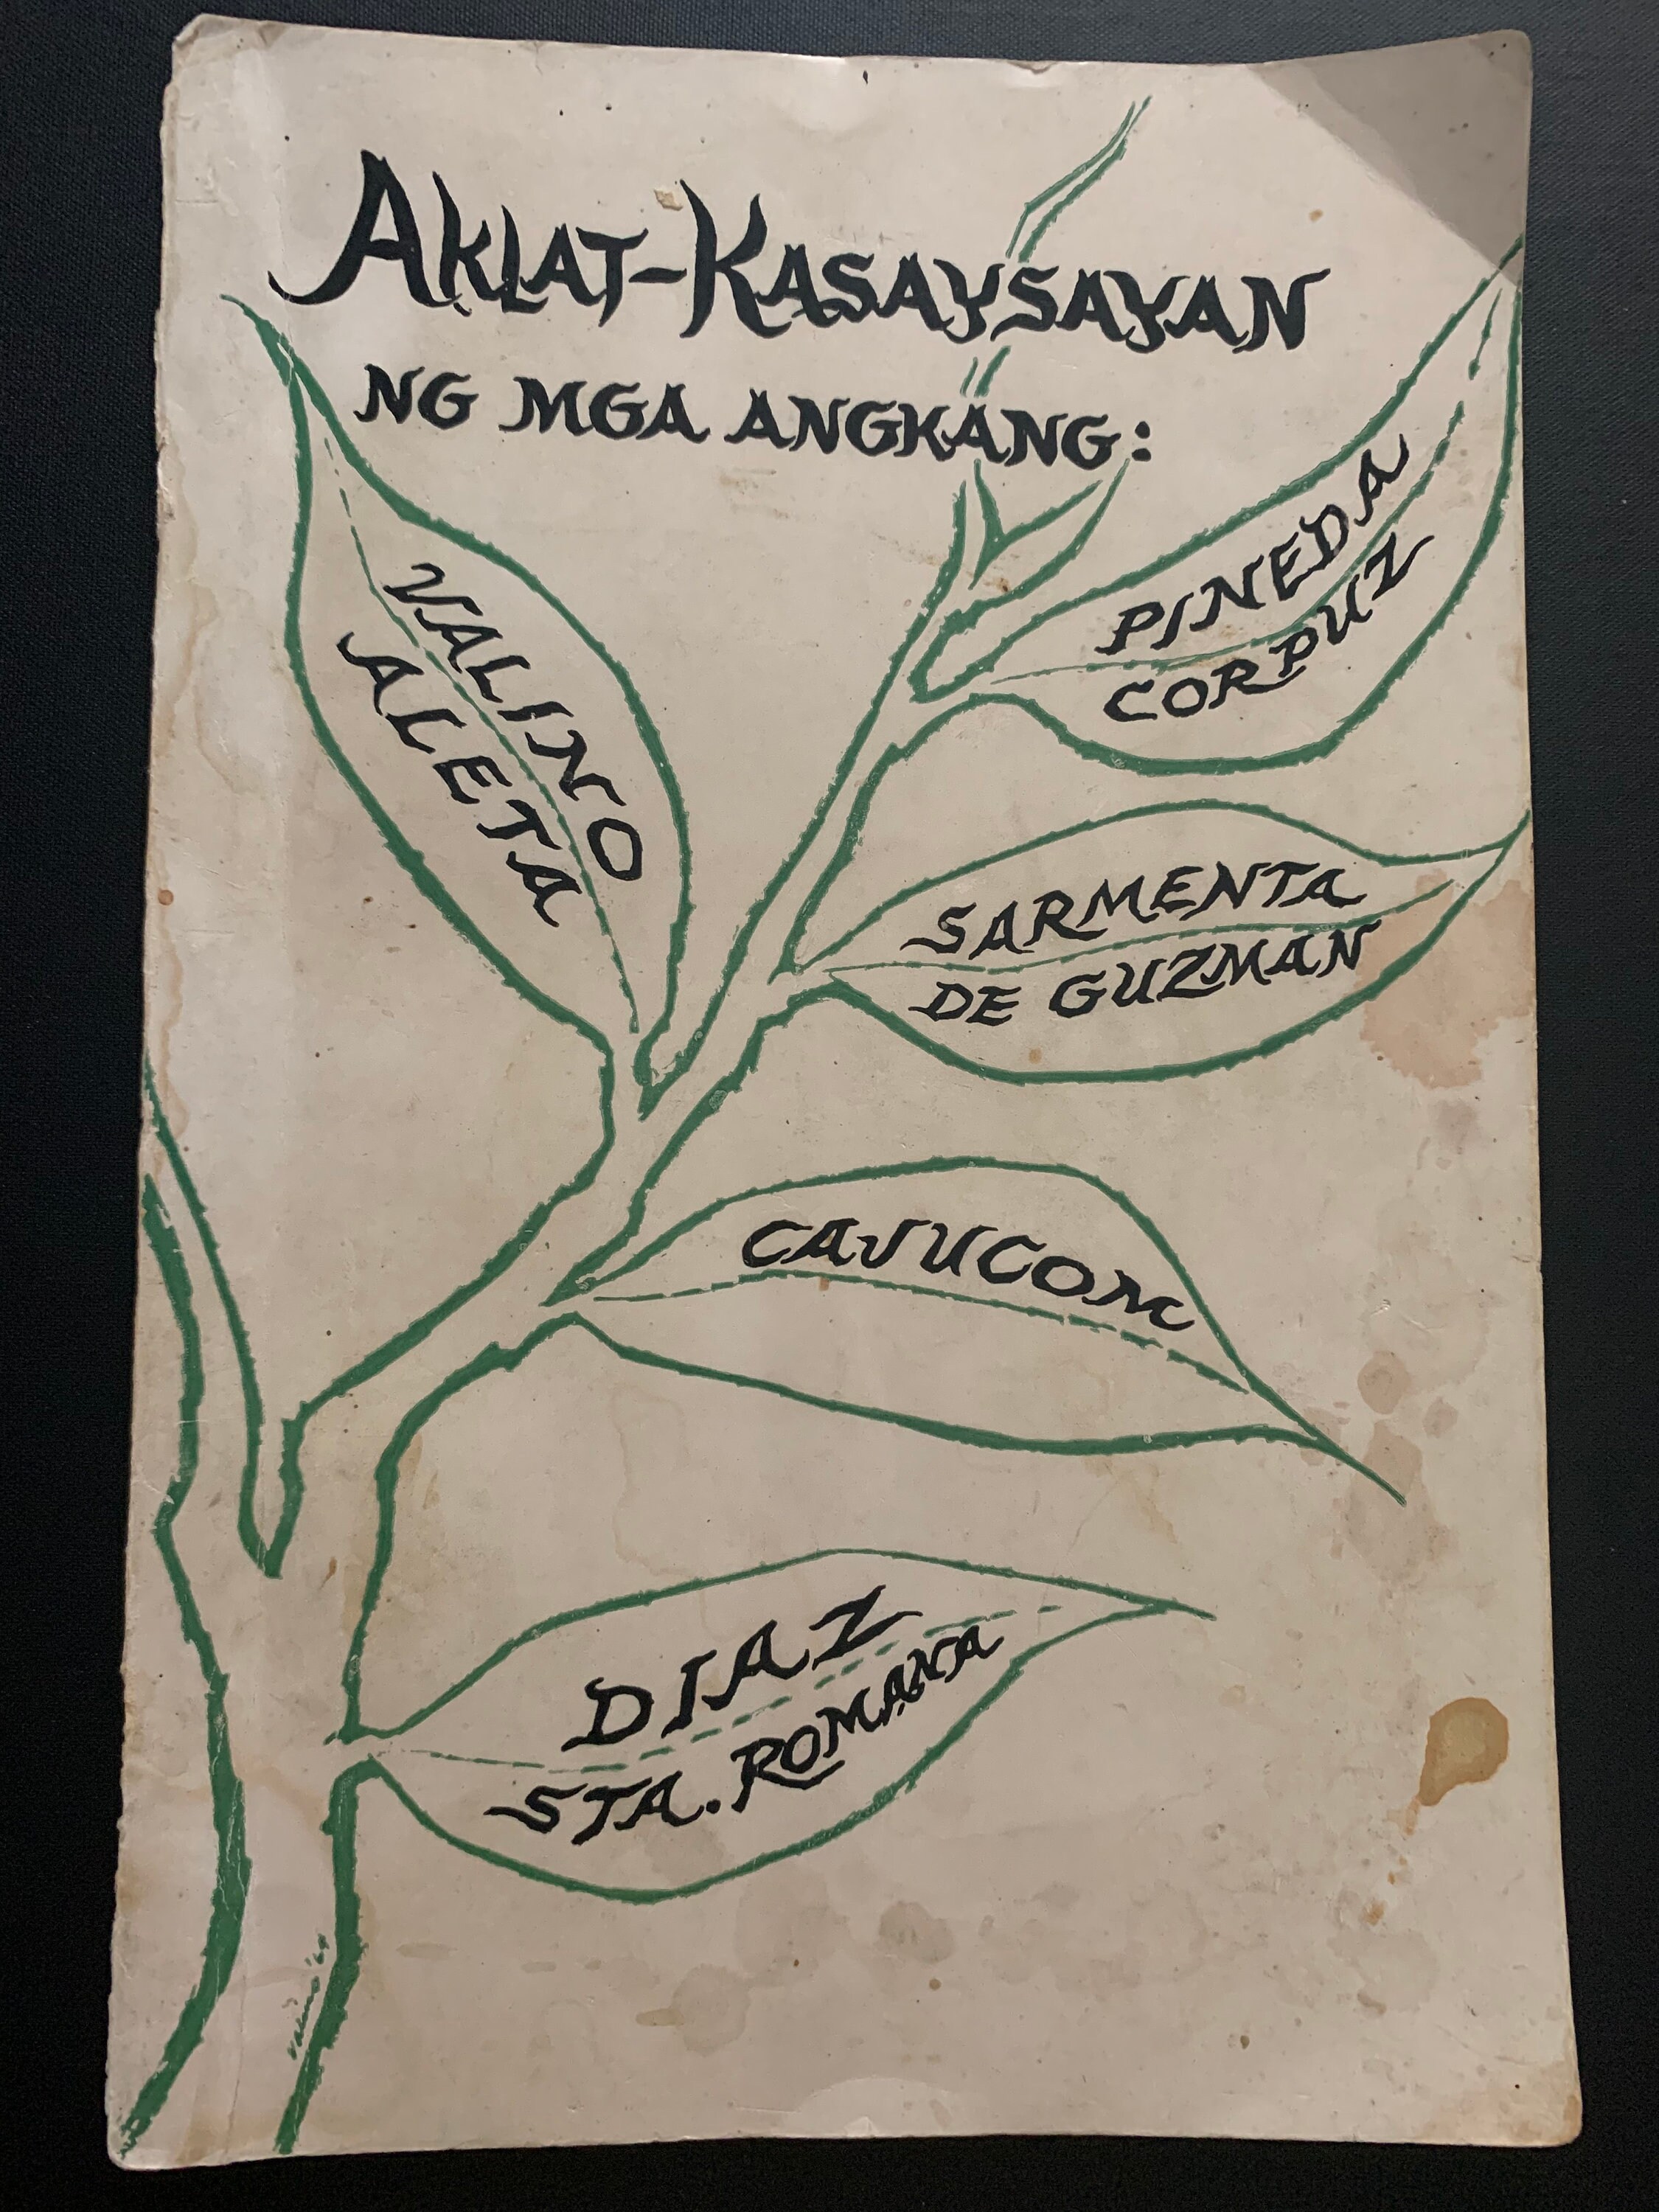 AKLAT-KASAYSAYAN
NG MGA ANGKANG:
VALINO
ALETA
PINEDA
CORPUZ
SARMENTA
DE GUZMAN
CAJUCOM
DIAZ
STA. ROMANA